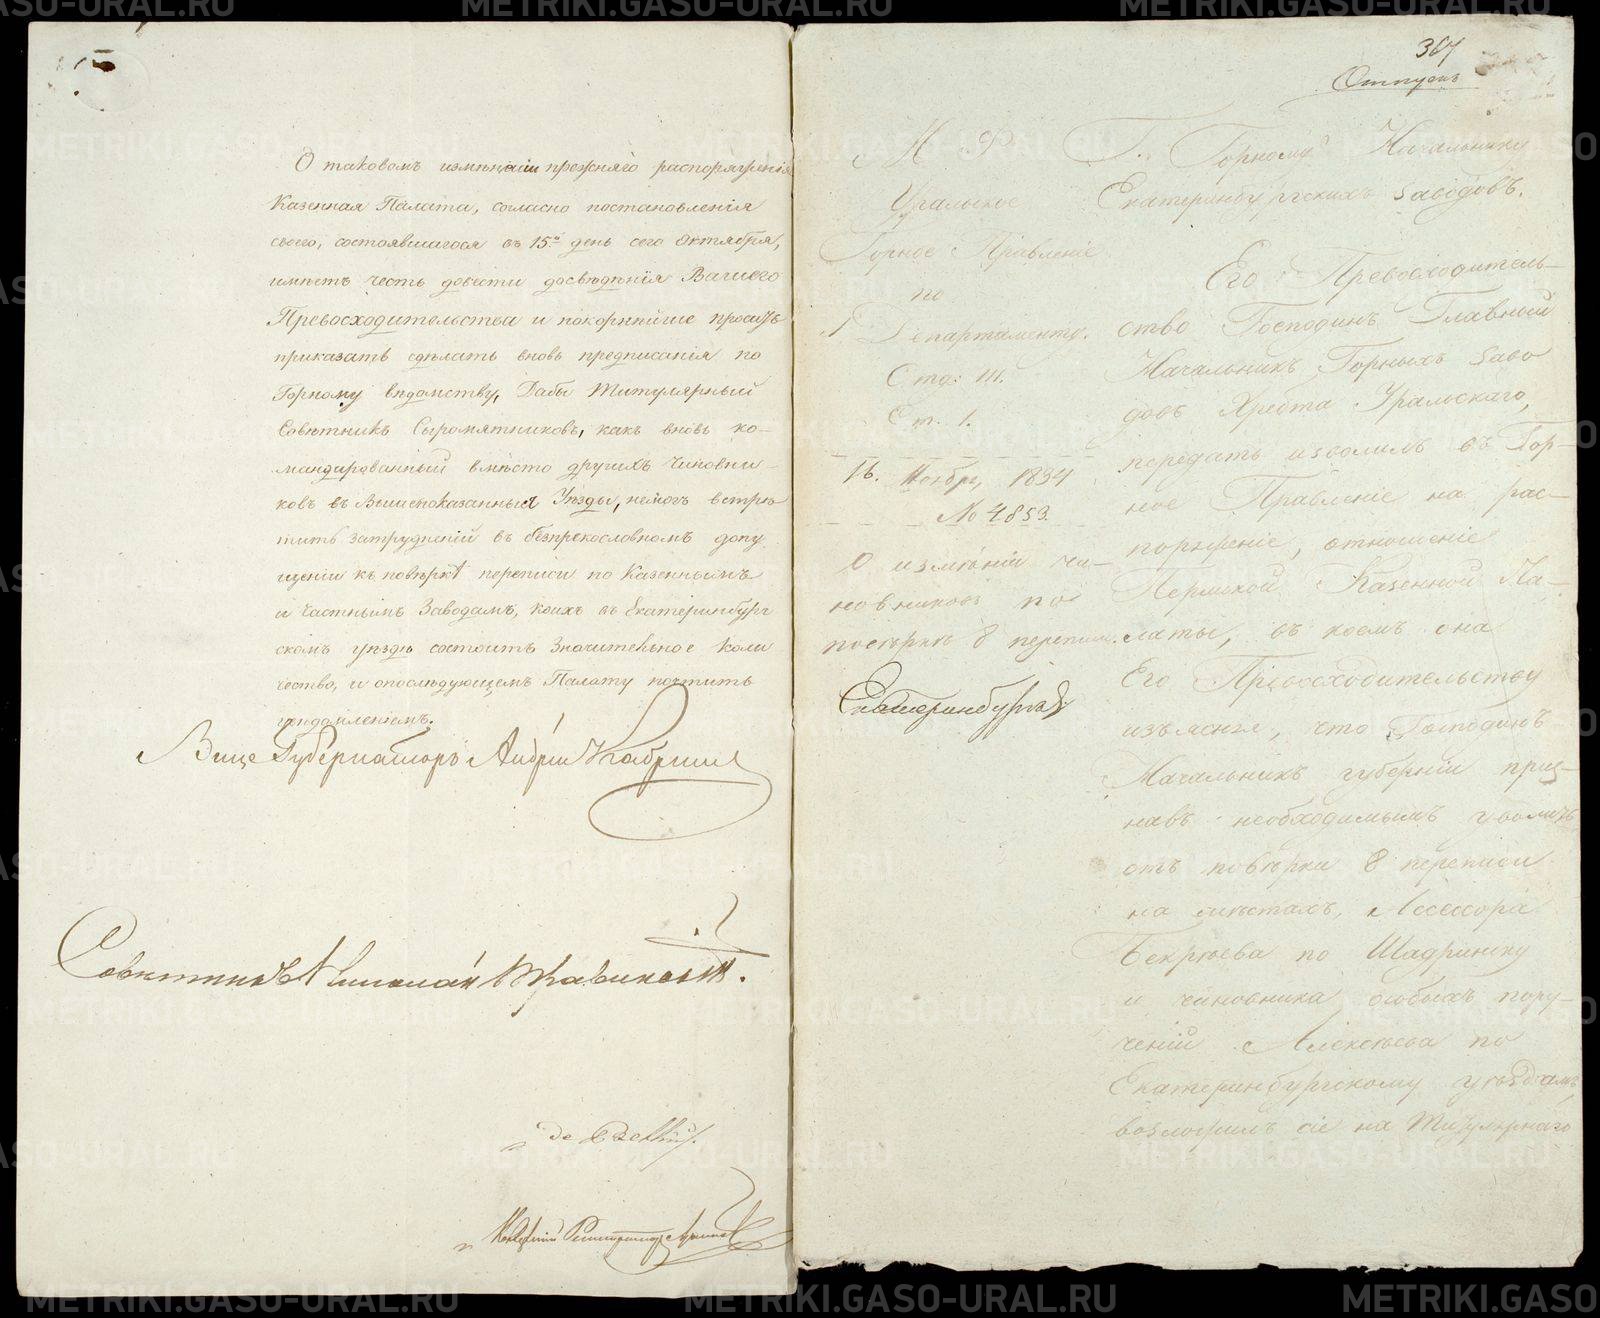 О таковомъ измѣненіи прежняго распоряженія
Казенная Палата, согласно постановленія
своего, состоявшагося въ 15й день сего Октября,
имѣетъ честь довести досвѣдѣнія Вашего
Превосходительства и покорнѣйше проситъ
приказать сдѣлать вновь предписанія по
Горному вѣдомству, Дабы Титулярный
Совѣтникъ Сыромятниковъ, какъ вновь ко-
мандированный вмѣсто другихъ чиновни-
ковъ въ Вышепоказанныя Уѣзды, немогъ встрѣ
тить затрудненій въ безпрекословномъ допу
щеніи къ повѣркѣ переписи по Казеннымъ
и Частнымъ Заводамъ, коихъ въ Екатеринбург
скомъ уѣздѣ состоитъ Значительное Коли
чество, и опослѣдующемъ Палату почтить
увѣдомленіемъ.
Вице Губернаторъ
Совѣтникъ Николай
367
Отпускъ
М. Ф.
Уральское
Горное Правленіе
по
1 Департаменту.
Отд: III.
Ст. 1.
16. Ноября, 1834
№ 4853.
О измѣненіи чи-
новниковъ по
повѣркѣ 8 переписи.
Екатеринбургъ
Г. Горному Начальнику
Екатеринбургскихъ Заводовъ.
Его Превосходитель-
ство Господинъ Главной
Начальникъ Горныхъ Заво
довъ Хребта Уральскаго,
передать изволилъ въ Гор-
ное Правленіе на рас-
поряженіе, отношеніе
Пермской Казенной Па-
латы, въ коемъ она
Его Превосходительству
изъясняя, что Господинъ
Начальникъ губерніи приз-
навъ необходимымъ уволить
отъ повѣрки 8 переписи
на мѣстахъ, Ассессора
Бекрюева по Шадринску
и чиновника особыхъ пору-
ченій Алексѣева по
Екатеринбургскому уѣздамъ,
возложилъ сіе на Титулярнаго
METRIKI.GASO-URAL.RU